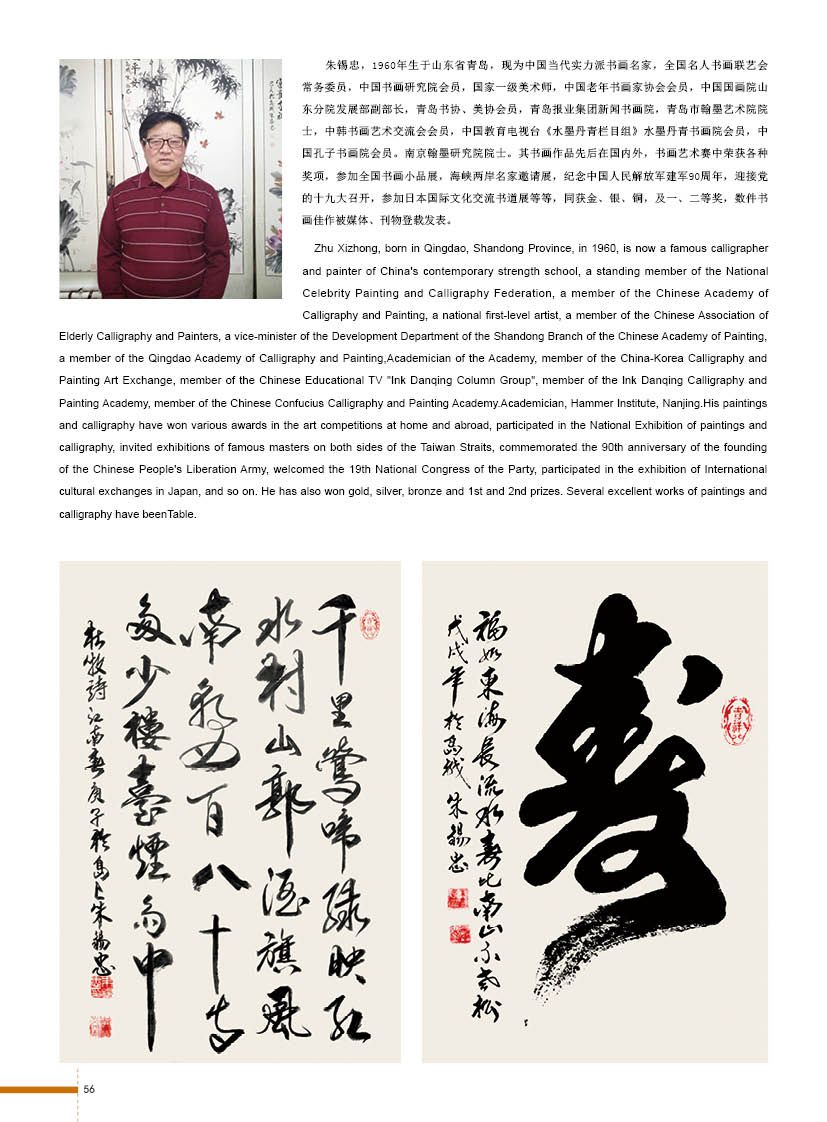 朱锡忠，1960年生于山东省青岛，现为中国当代实力派书画名家，全国名人书画联艺会
常务委员，中国书画研究院会员，国家一级美术师，中国老年书画家协会会员，中国国画院山
东分院发展部副部长，青岛书协、美协会员，青岛报业集团新闻书画院，青岛市翰墨艺术院院
士，中韩书画艺术交流会会员，中国教育电视台《水墨丹青栏目组》水墨丹青书画院会员，中
国孔子书画院会员。南京翰墨研究院院士。其书画作品先后在国内外，书画艺术赛中荣获各种
奖项，参加全国书画小品展，海峡两岸名家邀请展，纪念中国人民解放军建军90周年，迎接党
的十九大召开，参加日本国际文化交流书道展等等，同获金、银、铜，及一、二等奖，数件书
画佳作被媒体、刊物登载发表。
Zhu Xizhong, born in Qingdao, Shandong Province, in 1960, is now a famous calligrapher
and painter of China's contemporary strength school, a standing member of the National
Celebrity Painting and Calligraphy Federation, a member of the Chinese Academy of
Calligraphy and Painting, a national first-level artist, a member of the Chinese Association of
Elderly Calligraphy and Painters, a vice-minister of the Development Department of the Shandong Branch of the Chinese Academy of Painting,
a member of the Qingdao Academy of Calligraphy and Painting,Academician of the Academy, member of the China-Korea Calligraphy and
Painting Art Exchange, member of the Chinese Educational TV "Ink Danqing Column Group", member of the Ink Danqing Calligraphy and
Painting Academy, member of the Chinese Confucius Calligraphy and Painting Academy.Academician, Hammer Institute, Nanjing.His paintings
and calligraphy have won various awards in the art competitions at home and abroad, participated in the National Exhibition of paintings and
calligraphy, invited exhibitions of famous masters on both sides of the Taiwan Straits, commemorated the 90th anniversary of the founding
of the Chinese People's Liberation Army, welcomed the 19th National Congress of the Party, participated in the exhibition of International
cultural exchanges in Japan, and so on. He has also won gold, silver, bronze and 1st and 2nd prizes. Several excellent works of paintings and
calligraphy have beenTable.
千里鶯啼綠映紅
水村山郭酒旗風
南朝四百八十寺
多少樓臺煙雨中
杜牧詩江南春庚子於島上朱錫忠
壽
福如東海長流水壽比南山不老松
戊戌年於島城朱錫忠
56